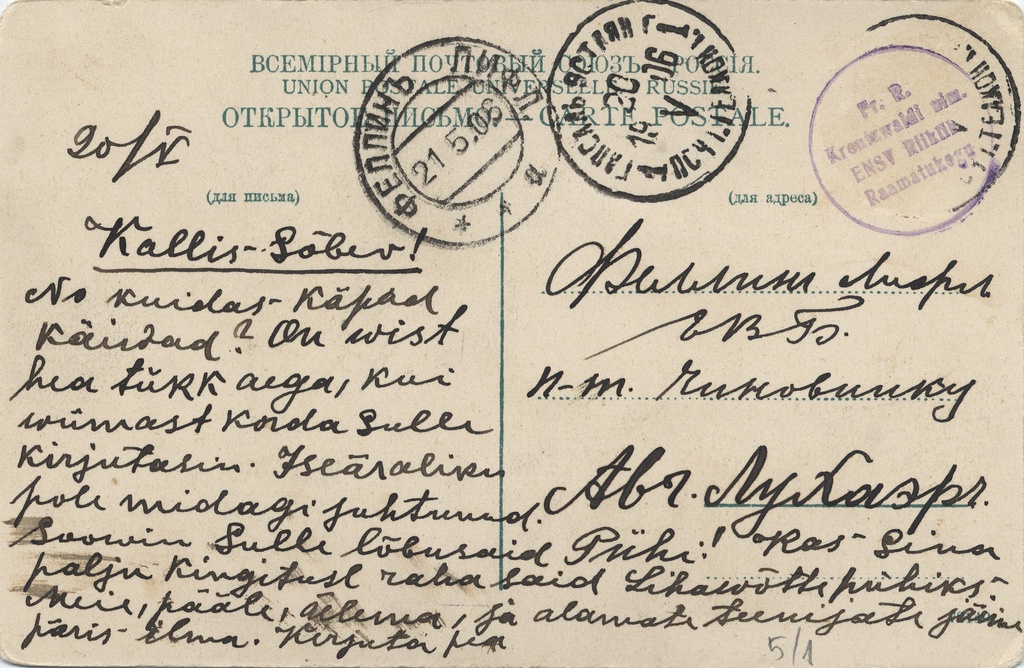 ВСЕМІРНЫЙ ПОЧТОВЫЙ СОЮЗЪ. РОССІЯ.
UNION POSTALE UNIVERSELLE. RUSSIE
ОТКРЫТОЕ ПИСЬМО. — CARTE POSTALE.
ФЕЛЛИНЪ ЛИФЛ.
21 5.06
а
20
V
1906
Fr. R.
Kreutzwaldi nim.
ENSV Riiklik
Raamatukogu
20/V
(для письма)
(для адреса)
Kallis Sõber!
No kuidas käpad
käisdad? On wist
hea tükk aega, kui
wiimast korda Sulle
kirjutasin. Iseäraliku
pole midagi juhtunud.
Soowin Sulle lõbusaid Pühi! Kas Sina
palju kingitust raha said Lihawõttepühiks
Meie, pääle, ülema, ja alamate teenijate jäime
päris ilma. Kirjuta pea
Феллин Лифл
ЕВБ.
п-т. Чиновнику
Авг. Лухаэрг.
5/1